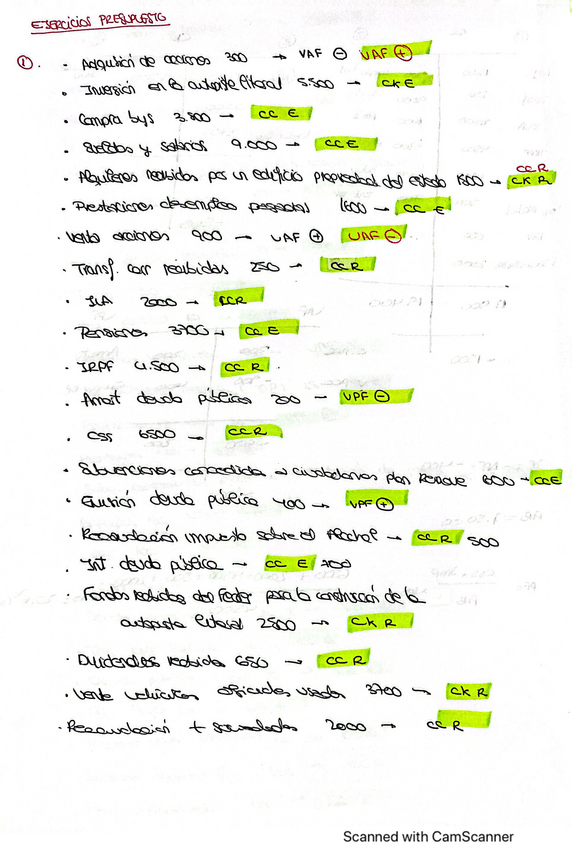 EJERCICIOS PRESUPUESTO
①. · Adquisición de acciones 300 → VAF ⊖ VAF ⊕
· Inversión en la autopista litoral 5.500 → CK E
· Compra bys 3.800 → CC E
· Sueldos y salarios 9.000 → CC E
CC R
· Alquileres recibidos por un edificio propiedad del estado 1500 → CK R
· Prestaciones desempleo pagadas 1600 → CC E
· Venta acciones 900 → VAF ⊕ VAF ⊖
· Transf. corr recibidas 250 → CCR
· IVA 2000 → CCR
· Pensiones 3700 → CC E
· IRPF 4.500 → CC R.
· Amort deuda pública 200 → VPF ⊖
· CSS 6500 → CCR
· Subvenciones concedidas a ciudadanos plan Renove 600 → CCE
· Emisión deuda pública 400 → VPF ⊕
· Recaudación impuesto sobre el Alcohol → CC R 500
· Int. deuda pública → CC E 700
· Fondos recibidos del Feder para la construcción de la
autopista litoral 2500 → CK R
· Dividendos recibidos 650 → CC R
· Venta vehículos oficiales usados 3700 → CK R
· Recaudación + sociedades 2000 → CC R
Scanned with CamScanner